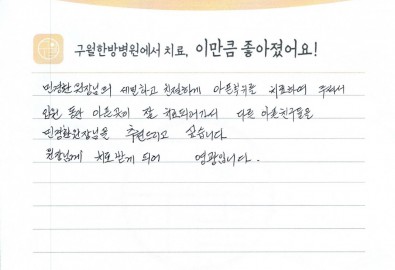 구월한방병원에서 치료, 이만큼 좋아졌어요!
민경환원장님의 세밀하고 친절하게 아픈부위를 치료하여 주셔서
입원 동안 아픈곳이 잘 치료되어가서 다른 아픈친구들은
민경환원장님을 추천드리고 싶습니다
원장님께 치료받게 되어 영광입니다.